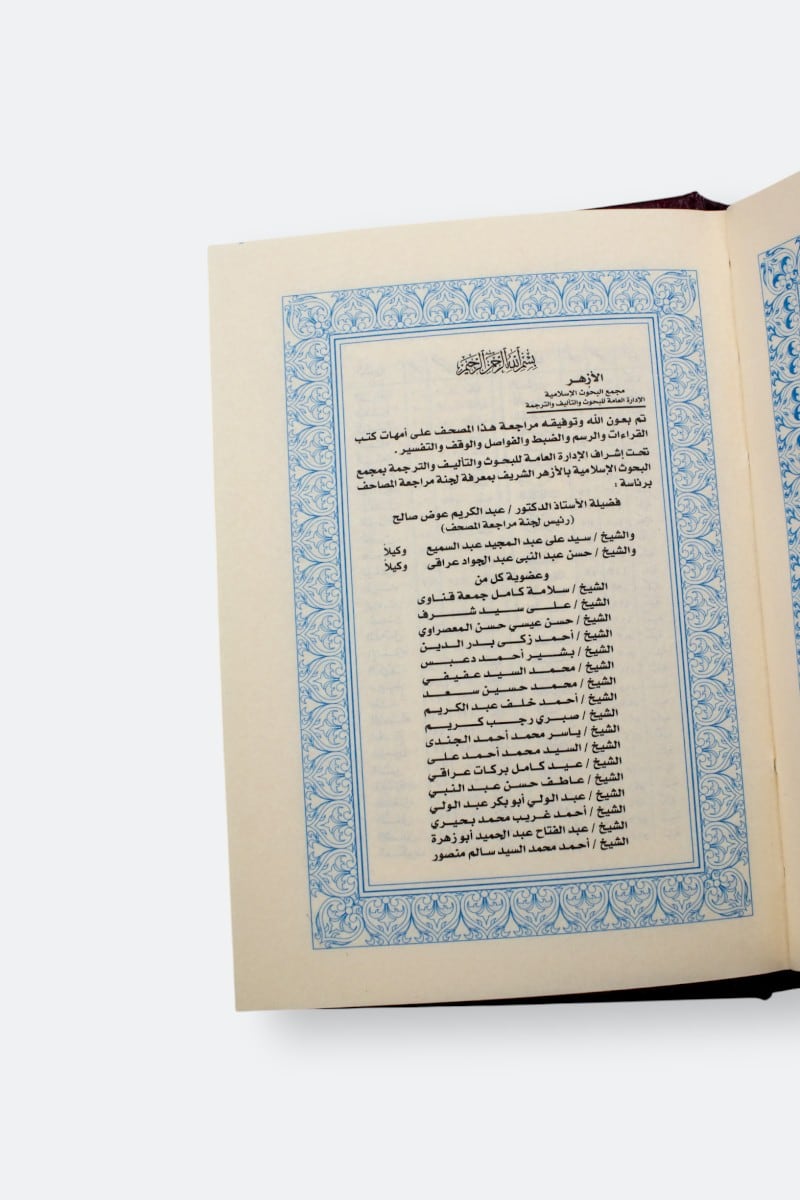 بسم الله الرحمن الرحيم
الأزهر
مجمع البحوث الإسلامية
الإدارة العامة للبحوث والتأليف والترجمة
تم بعون الله وتوفيقه مراجعة هذا المصحف على أمهات كتب
القراءات والرسم والضبط والفواصل والوقف والتفسير .
تحت إشراف الإدارة العامة للبحوث والتأليف والترجمة بمجمع
البحوث الإسلامية بالأزهر الشريف بمعرفة لجنة مراجعة المصاحف
برئاسة :
فضيلة الأستاذ الدكتور / عبد الكريم عوض صالح
(رئيس لجنة مراجعة المصحف)
والشيخ / سيد على عبد المجيد عبد السميع وكيلاً
والشيخ / حسن عبد النبى عبد الجواد عراقى وكيلاً
وعضوية كل من
الشيخ / سلامة كامل جمعة قناوى
الشيخ / على سيد شرف
الشيخ / حسن عيسي حسن المعصراوي
الشيخ / أحمد زكى بدر الدين
الشيخ / بشير أحمد دعبس
الشيخ / محمد السيد عفيفي
الشيخ / محمد حسين سعد
الشيخ / أحمد خلف عبد الكريم
الشيخ / صبري رجب كريم
الشيخ / ياسر محمد أحمد الجندى
الشيخ / السيد محمد أحمد على
الشيخ / عيد كامل بركات عراقي
الشيخ / عاطف حسن عبد النبي
الشيخ / عبد الولي أبو بكر عبد الولي
الشيخ / أحمد غريب محمد بحيري
الشيخ / عبد الفتاح عبد الحميد أبو زهرة
الشيخ / أحمد محمد السيد سالم منصور